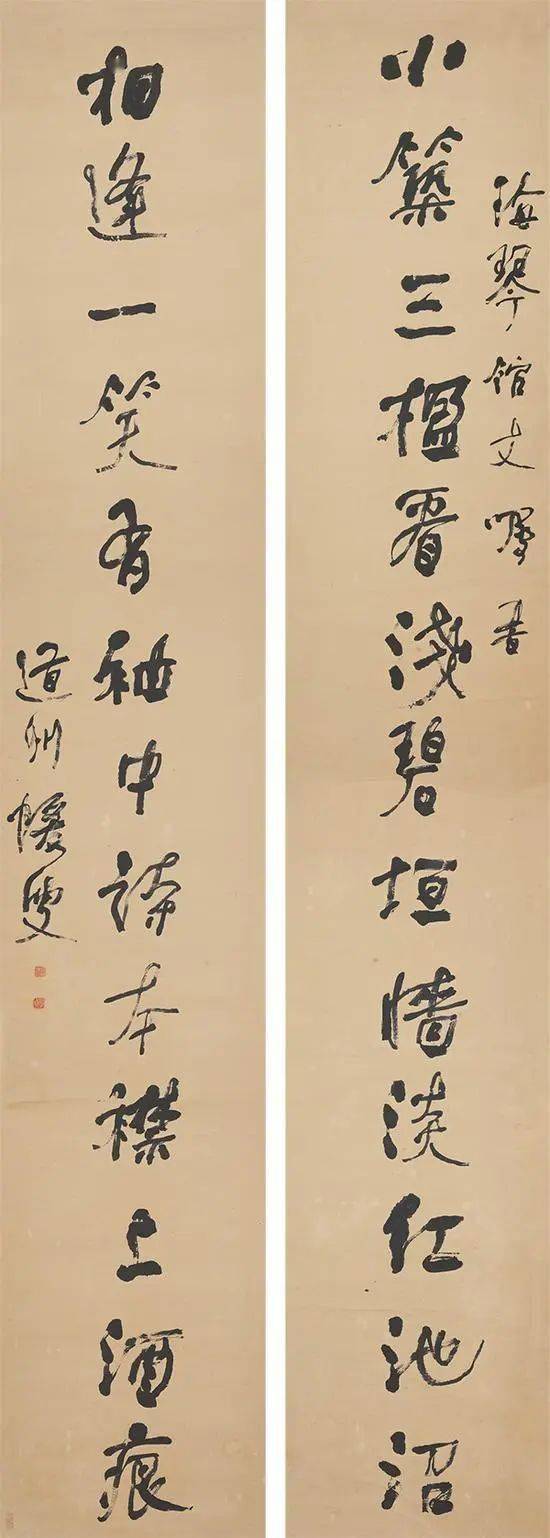 海琴館丈囑書
小築三楹看淺碧垣牆淡紅池沼
相逢一笑有袖中詩本襟上酒痕
道州蝯叟